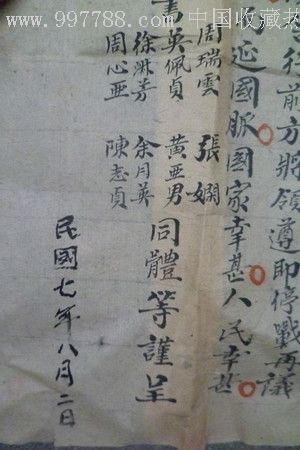 www.997788.com 中国收藏热
往前方將領遵即停戰再議
延國脈國家幸甚人民幸甚
周瑞雲 張嫻
佩貞 黃亞男
徐淑芳 余月英
周心亞 陳志貞
同體等謹呈
民國七年八月二日